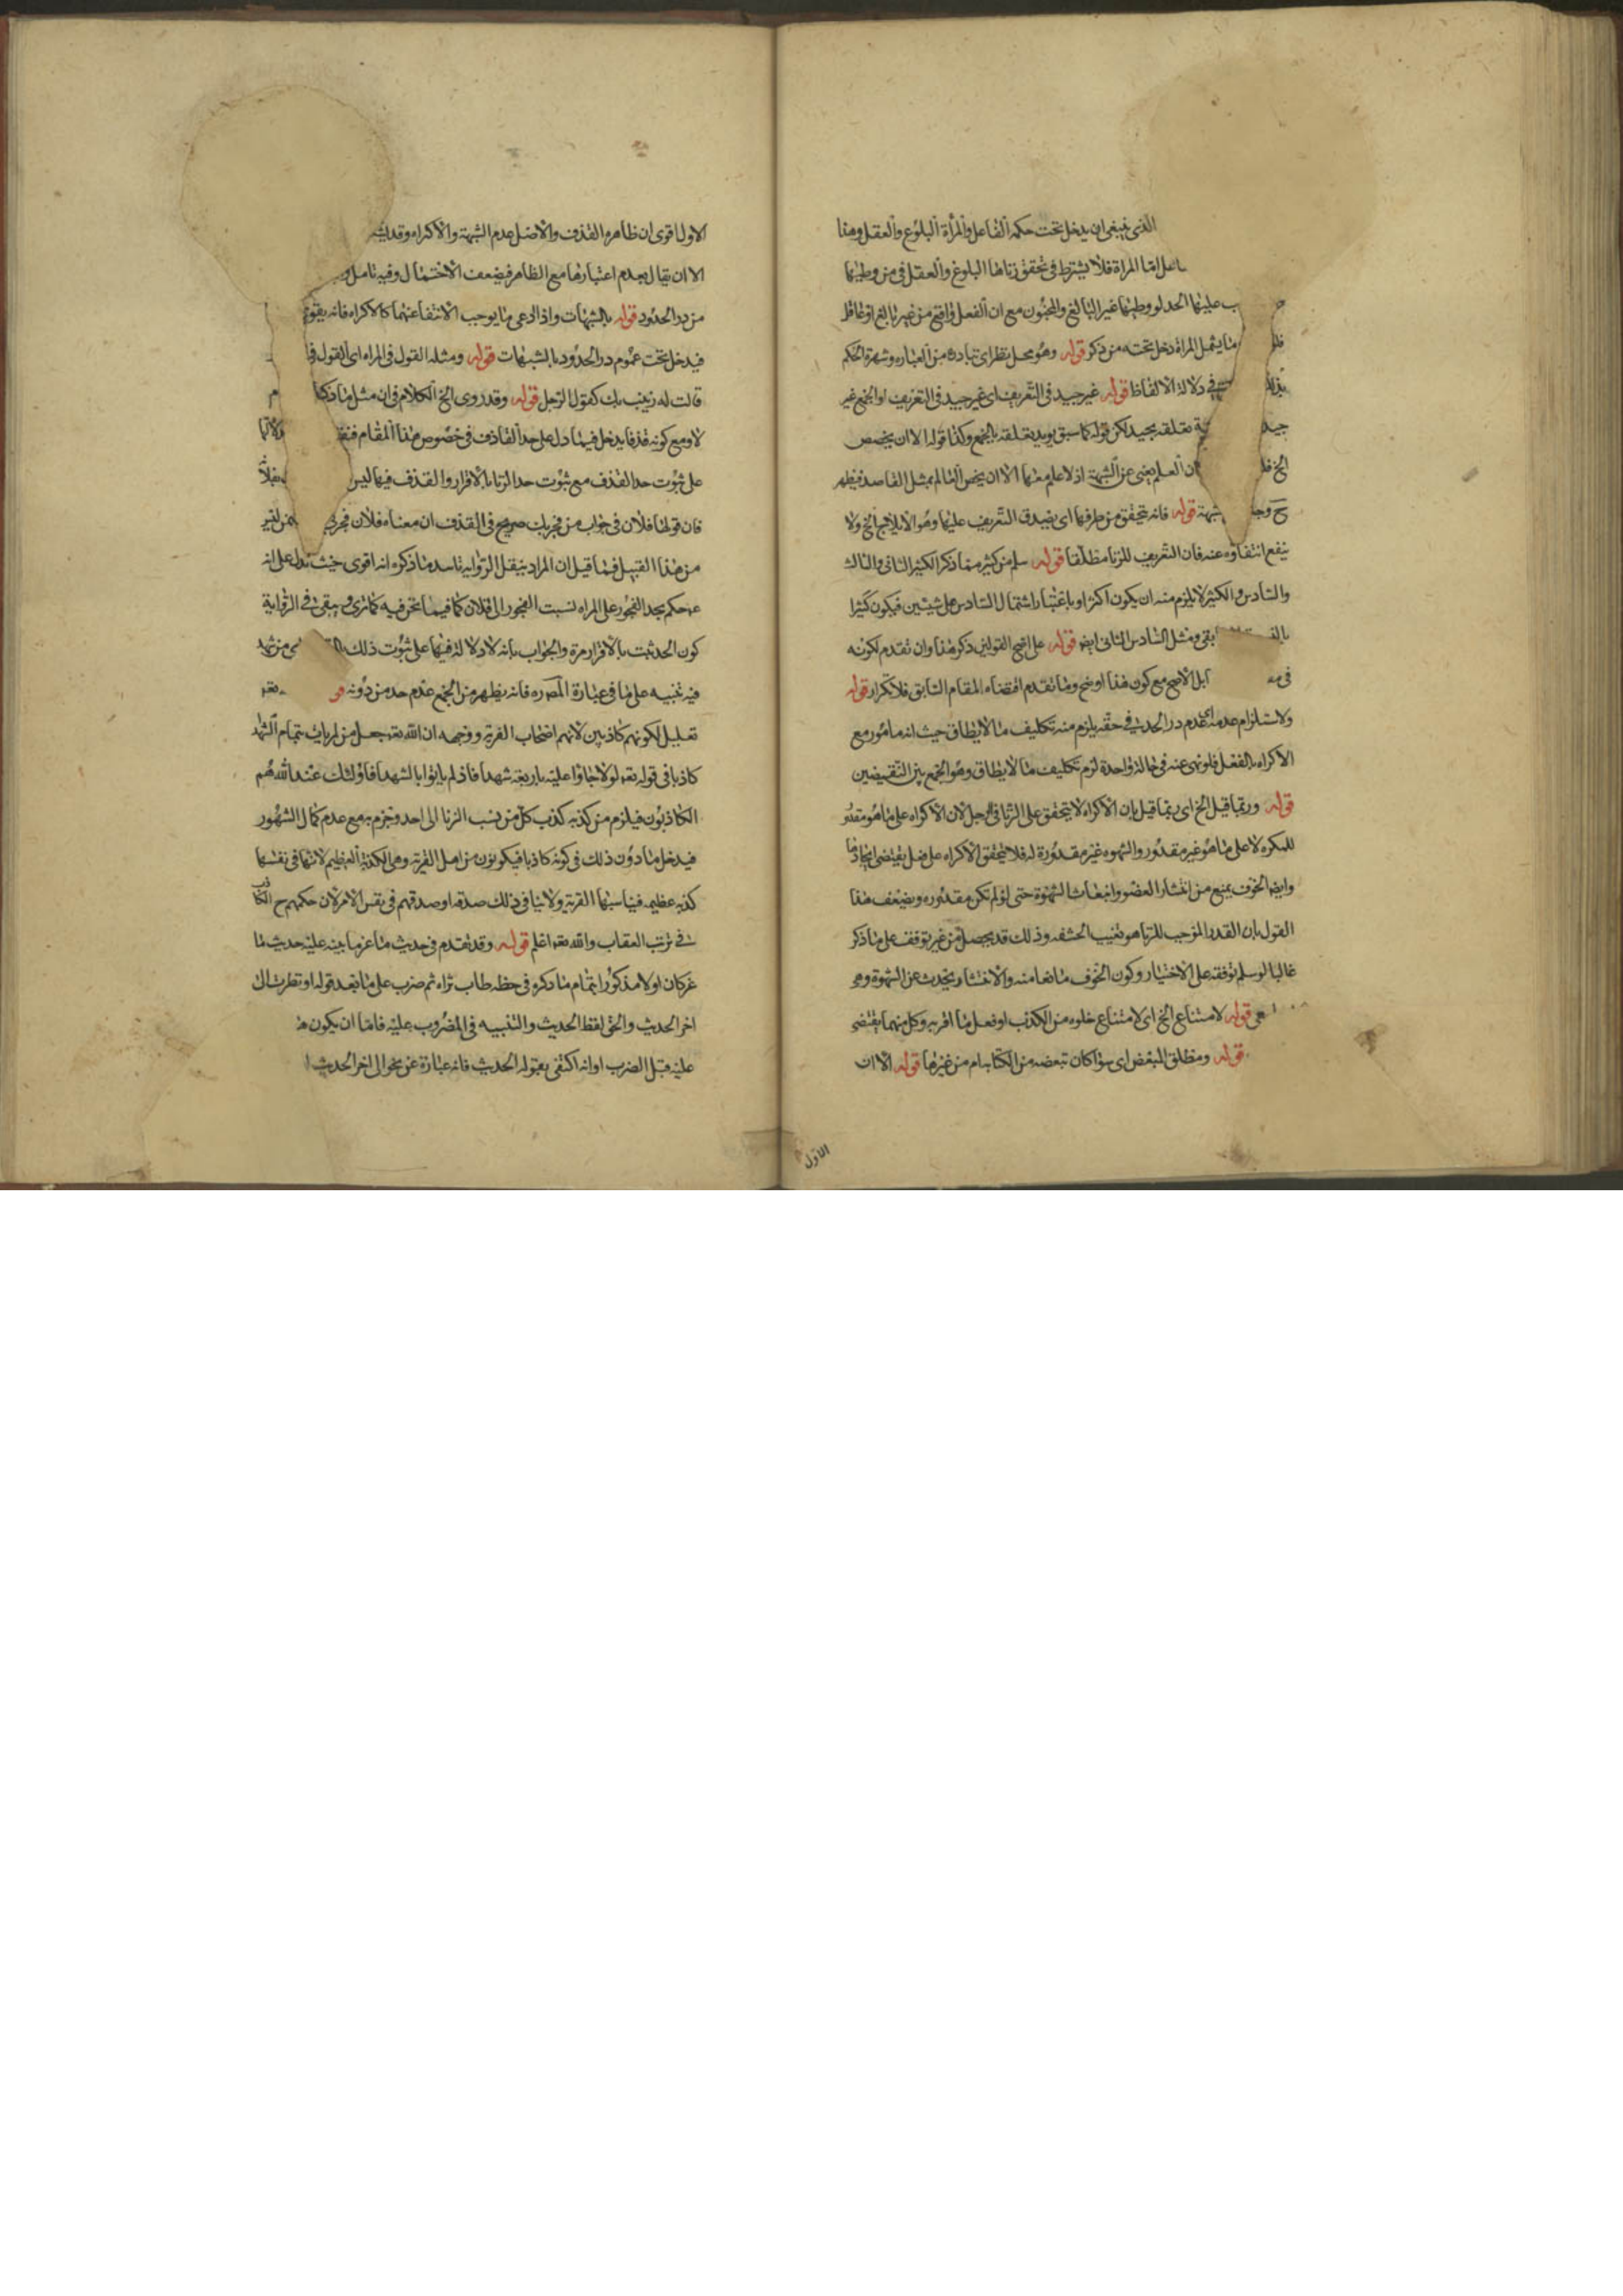 الذى ينبغى ان يدخل تحت حكمه الفاعل والمرأة البلوغ والعقل وهنا
اما المراة فلا يشترط فى تحقق زناها البلوغ والعقل فى من وطيها
عليها الحد لو وطيها غير البالغ والمجنون مع ان الفعل واقع من غير بالغ او عاقل
ما يشمل المراة دخل تحته من ذكر قوله وهو محل نظر اى تبادره من العباره وشهرة الحكم
فى دلالة الالفاظ قوله غير جيد فى التعريف اى غير جيد فى التعريف او الجمع غير
جيد تعلقه بجيد لكن قوله كما سبق يويد تعلقه بالجمع وكذا قوله الا ان يخصص
الخ العلم يغنى عن الشبهة اذ لا علم معها الا ان يخص العالم بمثل القاصد فيظهر
ح شبهة قوله فانه يتحقق من طرفها اى يصدق التعريف عليها وهو الايلاج الخ ولا
ينفع انتفاؤه عنه فان التعريف للزنا مطلقا قوله سلم من كثير مما ذكر الكثير الثانى والثالث
والسادس والكثير لا يلزم منه ان يكون اكثر او باعتبار اشتمال السادس على شيئين فيكون كثيرا
ومثل السادس الثانى ايضا قوله على اصح القولين ذكر هذا وان تقدم لكونه
فى الاصح مع كون هذا اوضح وما تقدم اقتضاه المقام السابق فلا تكرار قوله
ولاستلزام عدمه اى عدم درا الحد فى حقه يلزم منه تكليف ما لا يطاق حيث انه مامور مع
الاكراه بالفعل فلو نهى عنه فى حالة واحدة لزم تكليف ما لا يطاق وهو الجمع بين النقيضين
قوله وربما قيل الخ اى ربما قيل بان الاكراه لا يتحقق على الزنا فى الرجل لان الاكراه على ما هو مقدور
للمكره لا على ما هو غير مقدور والشهوه غير مقدورة له فلا يتحقق الاكراه على فعل يقتضى ايجادها
وايضا الخوف يمنع من انتشار العضو وانبعاث الشهوة حتى لو لم تكن مقدوره ويضعف هذا
القول بان القدر الموجب للزنا هو تغييب الحشفه وذلك قد يحصل من غير توقف على ما ذكر
غالبا لو سلم توقفه على الاختيار وكون الخوف مانعا منه والانتشار يحدث عن الشهوة وهى
قوله لامتناع الخ اى لامتناع خلوه من الكذب او فعل ما اقر به وكل منهما يقتضى
قوله ومطلق المبغض اى سوا كان تبعضه من الكتابه ام من غيرها قوله الا ان
الاول
الاول اقوى ان ظاهره القذف والاصل عدم الشبهة والاكراه وقد
الا ان يقال بعدم اعتبارها مع الظاهر فيضعف الاحتمال وفيه تامل
من درا الحدود قوله بالشبهات واذا ادعى ما يوجب الانتفا عنهما كالاكراه فانه
فيدخل تحت عموم درا الحدود بالشبهات قوله ومثله القول فى المراه اى القول
قالت له زنيت بك كقول الرجل قوله وقد روى الخ الكلام فى ان مثل هذا
لا ومع كونه قذفا يدخل فيما دل على حد القاذف فى خصوص هذا المقام
على ثبوت حد القذف مع ثبوت حد الزنا بالاقرار والقذف فيها ليس
فان قولها فلان فى جواب من فجر بك صريح فى القذف ان معناه فلان فجر
من هذا القبيل فما قيل ان المراد بنقل الروايه تاسد ما ذكره انه اقوى حيث تدل على انه
حكم بحد الفجور على المراه نسبت الفجور الى فلان كما فيما نحن فيه كما ترى ويبقى فى الرواية
كون الحد ثبت بالاقرار مرة والجواب بانه لا دلالة فيها على ثبوت ذلك
فيه تنبيه على ما فى عبارة المص ره فانه يظهر من الجمع عدم حد من دونه
تعليل لكونهم كاذبين لانهم اصحاب الفرية ووجهه ان الله تعه جعل من لم يات بتمام الشهد
كاذبا فى قوله تعه لولا جاؤا عليه باربعة شهدا فاذ لم ياتوا بالشهدا فاولئك عند الله هم
الكاذبون فيلزم من كذبه كذب كل من نسب الزنا الى احد وجزم به مع عدم كمال الشهود
فيدخل ما دون ذلك فى كونه كاذبا فيكونون من اهل الفرية وهى الكذبة العظيم لانها فى نفسها
كذبه عظيمه فيناسبها الفرية ولا ينافى ذلك صدقه او صدقهم فى نفس الامر لان حكمهم ح
فى ترتب العقاب والله تعه اعلم قوله وقد تقدم فى حديث ماعز ما بينه عليه حديث ما
عز كان اولا مذكورا بتمام ما ذكره فى حظه طاب ثراه ثم ضرب على ما بعد قوله او نظرت الى
اخر الحديث والحق لفظ الحديث والتنبيه فى المضروب عليه فاما ان يكون
عليه قبل الضرب او انه اكتفى بقوله الحديث فانه عبارة عن نحو الى اخر الحديث